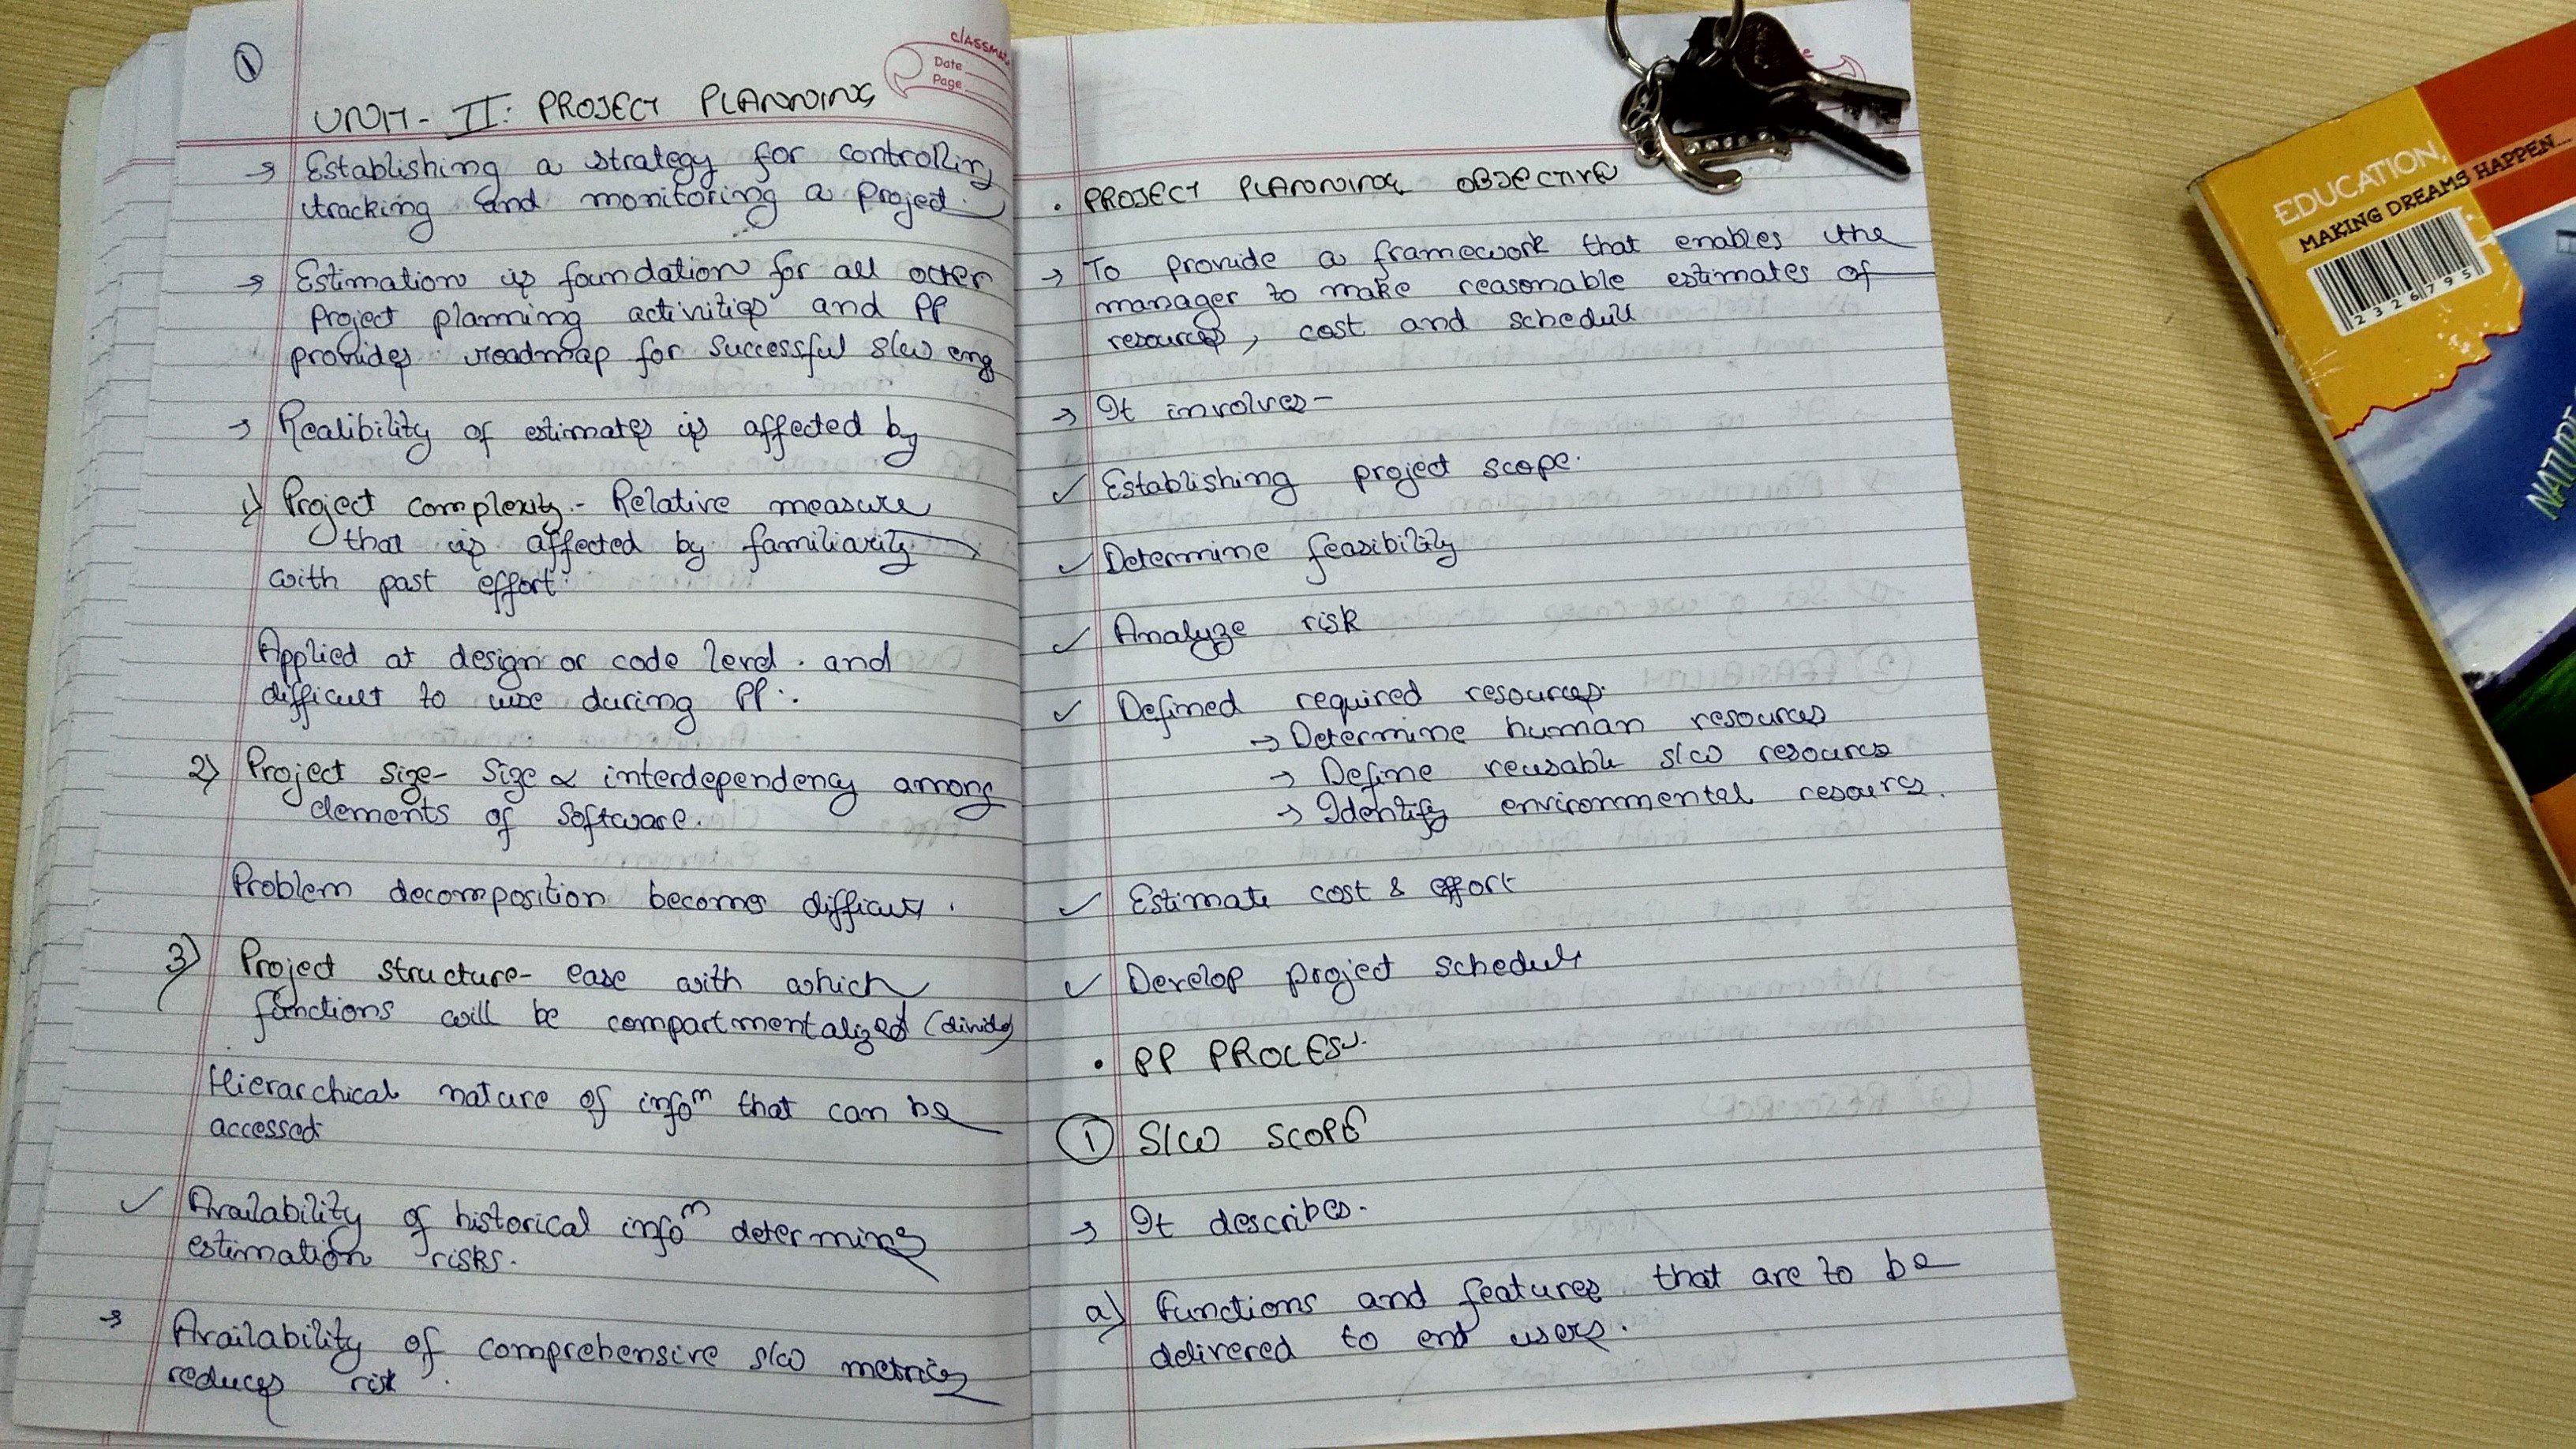 1
classmate
Date
Page
UNIT- II: PROJECT PLANNING
→ Establishing a strategy for controlling
tracking and monitoring a project.
→ Estimation is foundation for all other
project planning activities and PP
provides roadmap for successful s/w eng
→ Realibility of estimates is affected by
1) Project complexity - Relative measure
that is affected by familiarity
with past effort.
Applied at design or code level. and
difficult to use during PP.
2) Project size- Size ∝ interdependency among
elements of software.
Problem decomposition becomes difficult.
3) Project structure- ease with which
functions will be compartmentalized (divide)
Hierarchical nature of infoⁿ that can be
accessed
✓ Availability of historical infoⁿ determines
estimation risks.
→ Availability of comprehensive s/w metrics
reduces risk.
• PROJECT PLANNING OBJECTIVE
→ To provide a framework that enables the
manager to make reasonable estimates of
resources, cost and schedule
→ It involves-
✓ Establishing project scope.
✓ Determine feasibility
✓ Analyze risk
✓ Defined required resources.
→ Determine human resources
→ Define reusable s/w resources
→ Identify environmental resources.
✓ Estimate cost & effort
✓ Develop project schedule
• PP PROCESS.
1 S/W SCOPE
→ It describes.
a) functions and features that are to be
delivered to end users.
EDUCATION,
MAKING DREAMS HAPPEN...
2326795